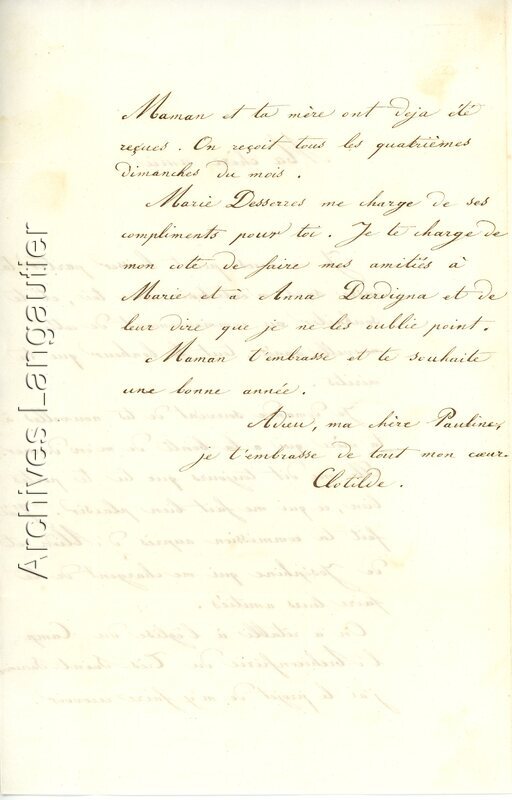 Maman et ta mère ont deja été
reçues. On reçoit tous les quatrièmes
dimanches du mois.
Marie Desserres me charge de ses
compliments pour toi. Je te charge de
mon cote de faire mes amitiés à
Marie et à Anna Dardigna et de
leur dire que je ne les oublie point.
Maman t'embrasse et te souhaite
une bonne année.
Adieu, ma chère Pauline,
je t'embrasse de tout mon cœur.
Clotilde.
Archives Langautier